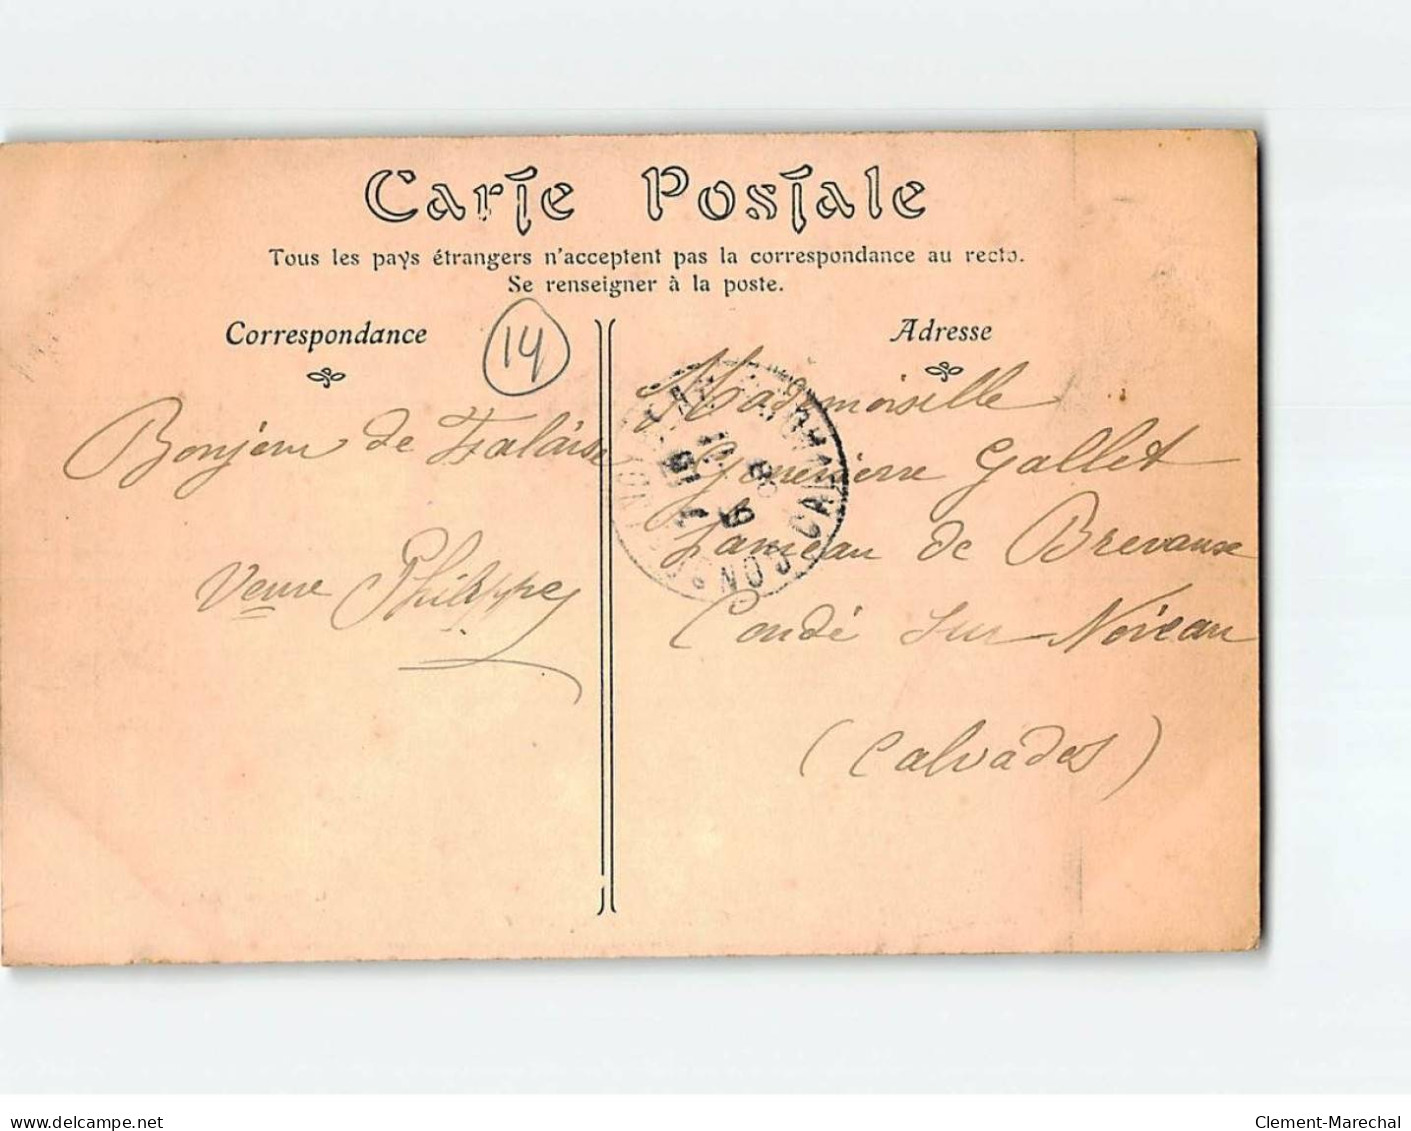 Carte Postale
Tous les pays étrangers n'acceptent pas la correspondance au recto.
Se renseigner à la poste.
Correspondance
14
Adresse
Bonjour de Falaise
Veuve Philippe
Mademoiselle
Geneviève Gallet
hameau de
Condé sur Noireau
(Calvados)
CALVADOS
delcampe.net
Clement-Marechal